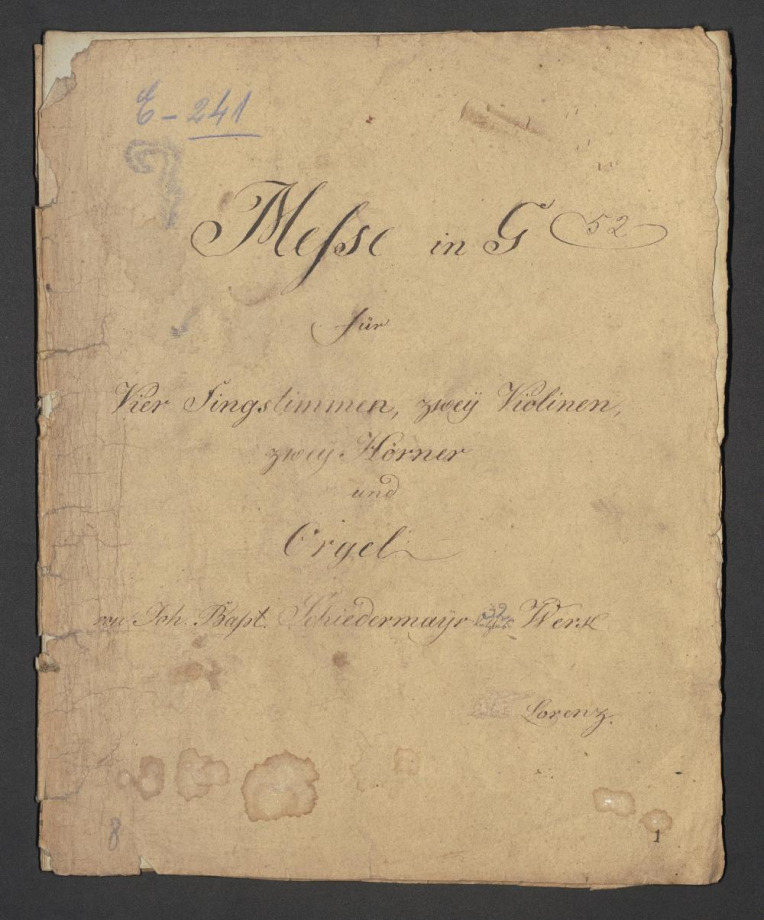 E-241
Messe in G 52
für
Vier Singstimmen, zweÿ Violinen,
zweÿ Hörner
und
Orgel
von Joh. Bapt. Schiedermaÿr Werk
Lorenz.
8
1